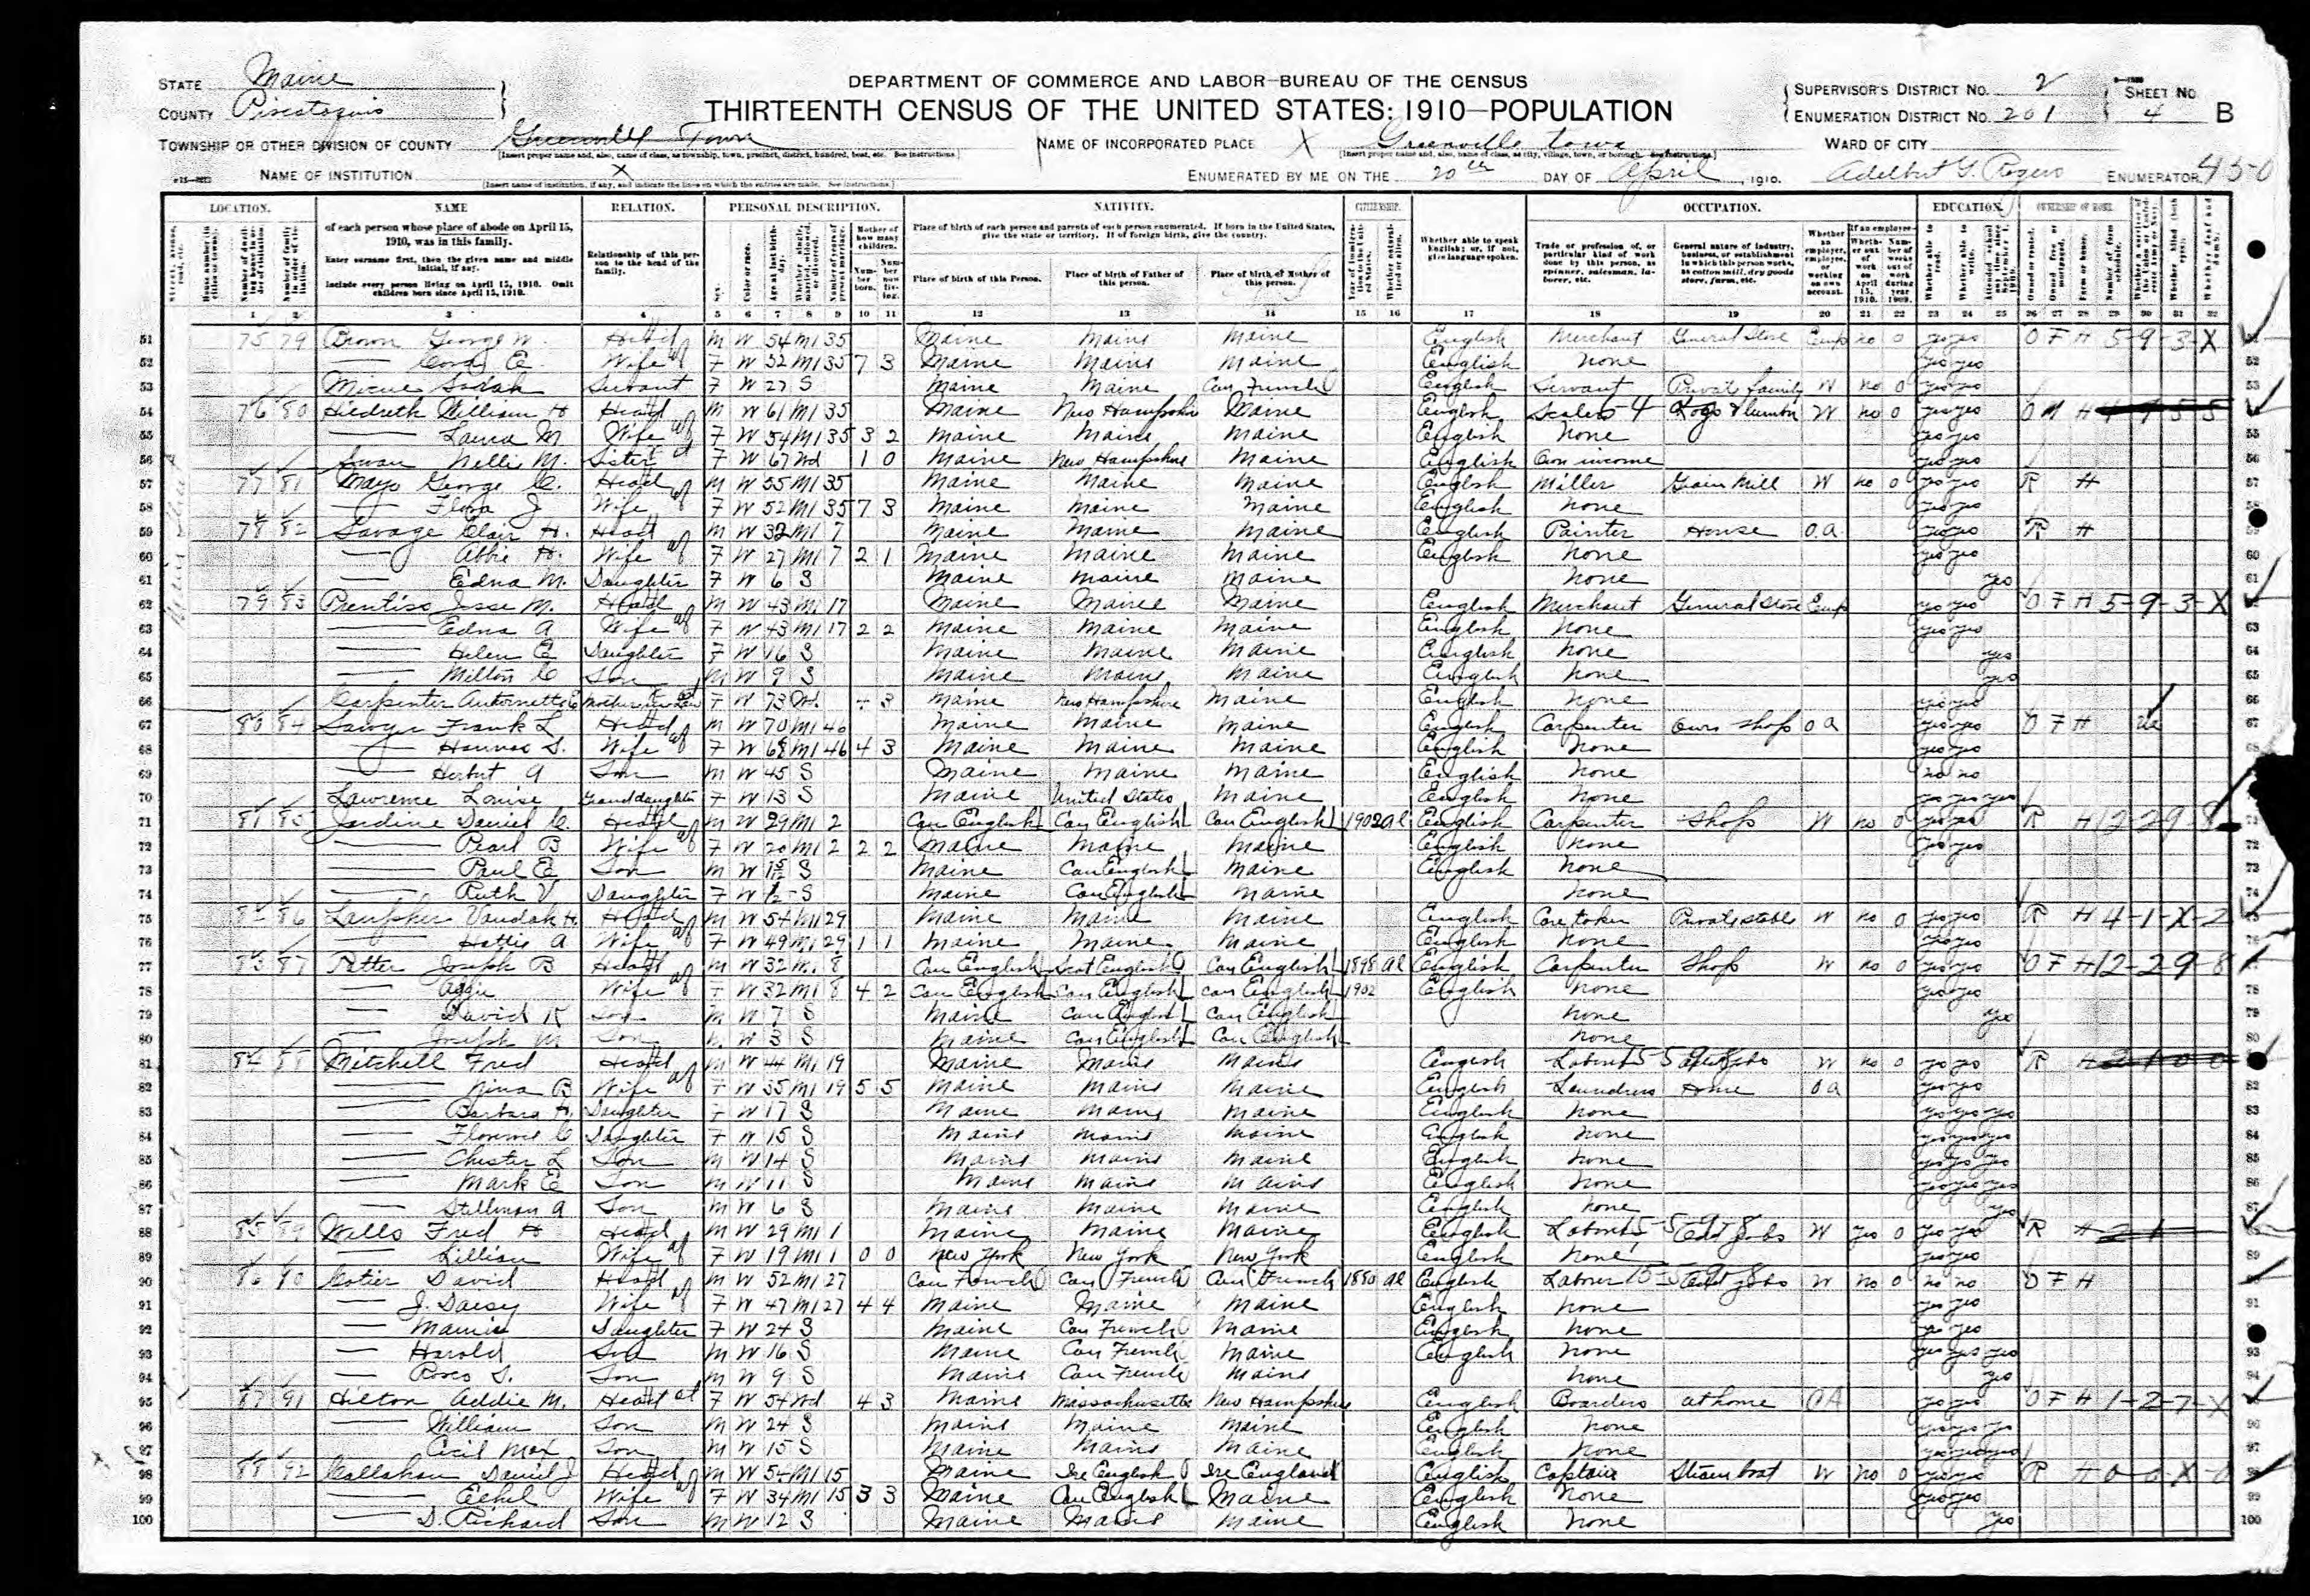 STATE Maine
COUNTY Piscataquis
DEPARTMENT OF COMMERCE AND LABOR—BUREAU OF THE CENSUS
THIRTEENTH CENSUS OF THE UNITED STATES: 1910—POPULATION
SUPERVISOR'S DISTRICT NO. 2
ENUMERATION DISTRICT NO. 201
SHEET NO. 4 B
TOWNSHIP OR OTHER DIVISION OF COUNTY Greenville Town
NAME OF INCORPORATED PLACE X Greenville town
WARD OF CITY
NAME OF INSTITUTION X
ENUMERATED BY ME ON THE 20th DAY OF April, 1910. Adelbert G. Rogers ENUMERATOR 450
LOCATION. NAME RELATION. PERSONAL DESCRIPTION. NATIVITY. CITIZENSHIP. OCCUPATION. EDUCATION. OWNERSHIP OF HOME.
of each person whose place of abode on April 15, 1910, was in this family.
Enter surname first, then the given name and middle initial, if any.
Include every person living on April 15, 1910. Omit children born since April 15, 1910.
Relationship of this person to the head of the family.
Place of birth of each person and parents of each person enumerated. If born in the United States, give the state or territory. If of foreign birth, give the country.
Place of birth of this Person. Place of birth of Father of this person. Place of birth of Mother of this person.
Whether able to speak English; or, if not, give language spoken.
Trade or profession of, or particular kind of work done by this person, as spinner, salesman, laborer, etc.
General nature of industry, business, or establishment in which this person works, as cotton mill, dry goods store, farm, etc.
51 75 79 Brown George W. Head M W 54 M1 35 Maine Maine Maine English Merchant General Store Emp no 0 yes yes O F H 5-9-3-X
52 — Cora E. Wife F W 52 M1 35 7 3 Maine Maine Maine English None yes yes
53 Servant F W 27 S Maine Maine Can French English Servant Private family W no 0 yes yes
54 76 80 Hildreth William H Head M W 61 M1 35 Maine New Hampshire Maine English Scaler 4 Logs & lumber W no 0 yes yes O M H
55 — Laura M. Wife F W 54 M1 35 3 2 Maine Maine Maine English None yes yes
56 Swan Nellie M. Sister F W 67 Wd 1 0 Maine New Hampshire Maine English Own income yes yes
57 77 81 Mayo George C. Head M W 55 M1 35 Maine Maine Maine English Miller Grain Mill W no 0 yes yes R H
58 — Flora J Wife F W 52 M1 35 7 3 Maine Maine Maine English None yes yes
59 78 82 Savage Clair H. Head M W 32 M1 7 Maine Maine Maine English Painter House O.A. yes yes R H
60 — Abbie H. Wife F W 27 M1 7 2 1 Maine Maine Maine English None yes yes
61 — Edna M. Daughter F W 6 S Maine Maine Maine None yes
62 79 83 Prentiss Jesse M. Head M W 43 M1 17 Maine Maine Maine English Merchant General Store Emp yes yes O F H 5-9-3-X
63 — Edna A Wife F W 43 M1 17 2 2 Maine Maine Maine English None yes yes
64 — Helen E Daughter F W 16 S Maine Maine Maine English None yes
65 — Milton C Son M W 9 S Maine Maine Maine English None yes
66 Carpenter Antoinette E Mother in Law F W 73 Wd 3 Maine New Hampshire Maine English None yes yes
67 80 84 Sawyer Frank L Head M W 70 M1 46 Maine Maine Maine English Carpenter Own shop O A yes yes O F H
68 — Hannah S. Wife F W 68 M1 46 4 3 Maine Maine Maine English None yes yes
69 — Herbert A Son M W 45 S Maine Maine Maine English None no no
70 Lawrence Louise Granddaughter F W 13 S Maine United States Maine English None yes yes yes
71 81 85 Jardine Daniel C. Head M W 29 M1 2 Can English Can English Can English 1902 al English Carpenter Shop W no 0 yes yes R H 12-29-8
72 — Pearl B Wife F W 20 M1 2 2 2 Maine Maine Maine English None yes yes
73 — Paul E Son M W S Maine Can English Maine English None
74 — Ruth V Daughter F W S Maine Can English Maine None
75 82 86 Head M W 54 M1 29 Maine Maine Maine English Care taker Private stable W no 0 yes yes R H 4-1-X-2
76 — Hattie A Wife F W 49 M1 29 1 1 Maine Maine Maine English None yes yes
77 83 87 Potter Joseph B Head M W 32 M1 8 Can English Scot English Can English 1898 al English Carpenter Shop W no 0 yes yes O F H 12-29-8
78 — Aggie Wife F W 32 M1 8 4 2 Can English Can English Can English 1902 English None yes yes
79 — David K Son M W 7 S Maine Can English Can English None yes
80 — Joseph M Son M W 3 S Maine Can English Can English None
81 84 88 Mitchell Fred Head M W 44 M1 19 Maine Maine Maine English Laborer Odd jobs W no 0 yes yes R H
82 — Nina B Wife F W 35 M1 19 5 5 Maine Maine Maine English Laundress Home O A yes yes
83 — Barbara H. Daughter F W 17 S Maine Maine Maine English None yes yes yes
84 — Florence C Daughter F W 15 S Maine Maine Maine English None yes yes yes
85 — Chester L Son M W 14 S Maine Maine Maine English None yes yes yes
86 — Mark E Son M W 11 S Maine Maine Maine English None yes yes yes
87 — Stillman A Son M W 6 S Maine Maine Maine English None yes
88 85 89 Wells Fred H Head M W 29 M1 1 Maine Maine Maine English Laborer Odd jobs W yes 0 yes yes R H
89 — Lillian Wife F W 19 M1 1 0 0 New York New York New York English None yes yes
90 86 90 Cotier David Head M W 52 M1 27 Can French Can French Can French 1880 al English Laborer Odd jobs W no 0 no no O F H
91 — J. Daisy Wife F W 47 M1 27 4 4 Maine Maine Maine English None yes yes
92 — Mamie Daughter F W 24 S Maine Can French Maine English None yes yes
93 — Harold Son M W 16 S Maine Can French Maine English None yes yes yes
94 — Ross S. Son M W 9 S Maine Can French Maine None yes
95 87 91 Hilton Addie M. Head F W 54 Wd 4 3 Maine Massachusetts New Hampshire English Boarders at home OA yes yes O F H 1-2-7-X
96 — William Son M W 24 S Maine Maine Maine English None yes yes yes
97 — Cecil Max Son M W 15 S Maine Maine Maine English None yes yes yes
98 88 92 Callahan Daniel J Head M W 54 M1 15 Maine Ire English Ire England English Captain Steam boat W no 0 yes yes R H 0-0-X-0
99 — Ethel Wife F W 34 M1 15 3 3 Maine Can English Maine English None yes yes
100 — D. Richard Son M W 12 S Maine Maine Maine English None yes